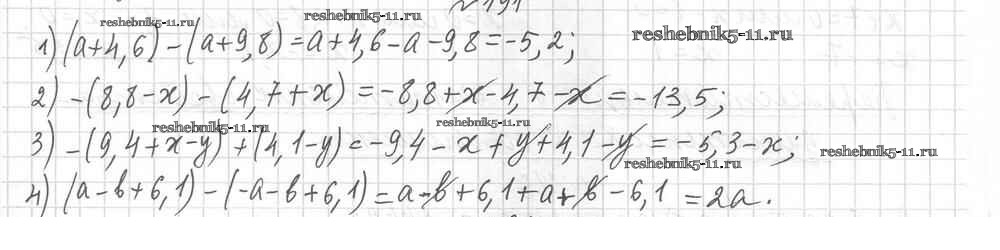 № 191
reshebnik5-11.ru
reshebnik5-11.ru
1) (a+4,6)-(a+9,8)=a+4,6-a-9,8=-5,2;
reshebnik5-11.ru
2) -(8,8-x)-(4,7+x)=-8,8+x-4,7-x=-13,5;
reshebnik5-11.ru
reshebnik5-11.ru
3) -(9,4+x-y)+(4,1-y)=-9,4-x+y+4,1-y=-5,3-x;
reshebnik5-11.ru
reshebnik5-11.ru
4) (a-b+6,1)-(-a-b+6,1)=a-b+6,1+a+b-6,1=2a.